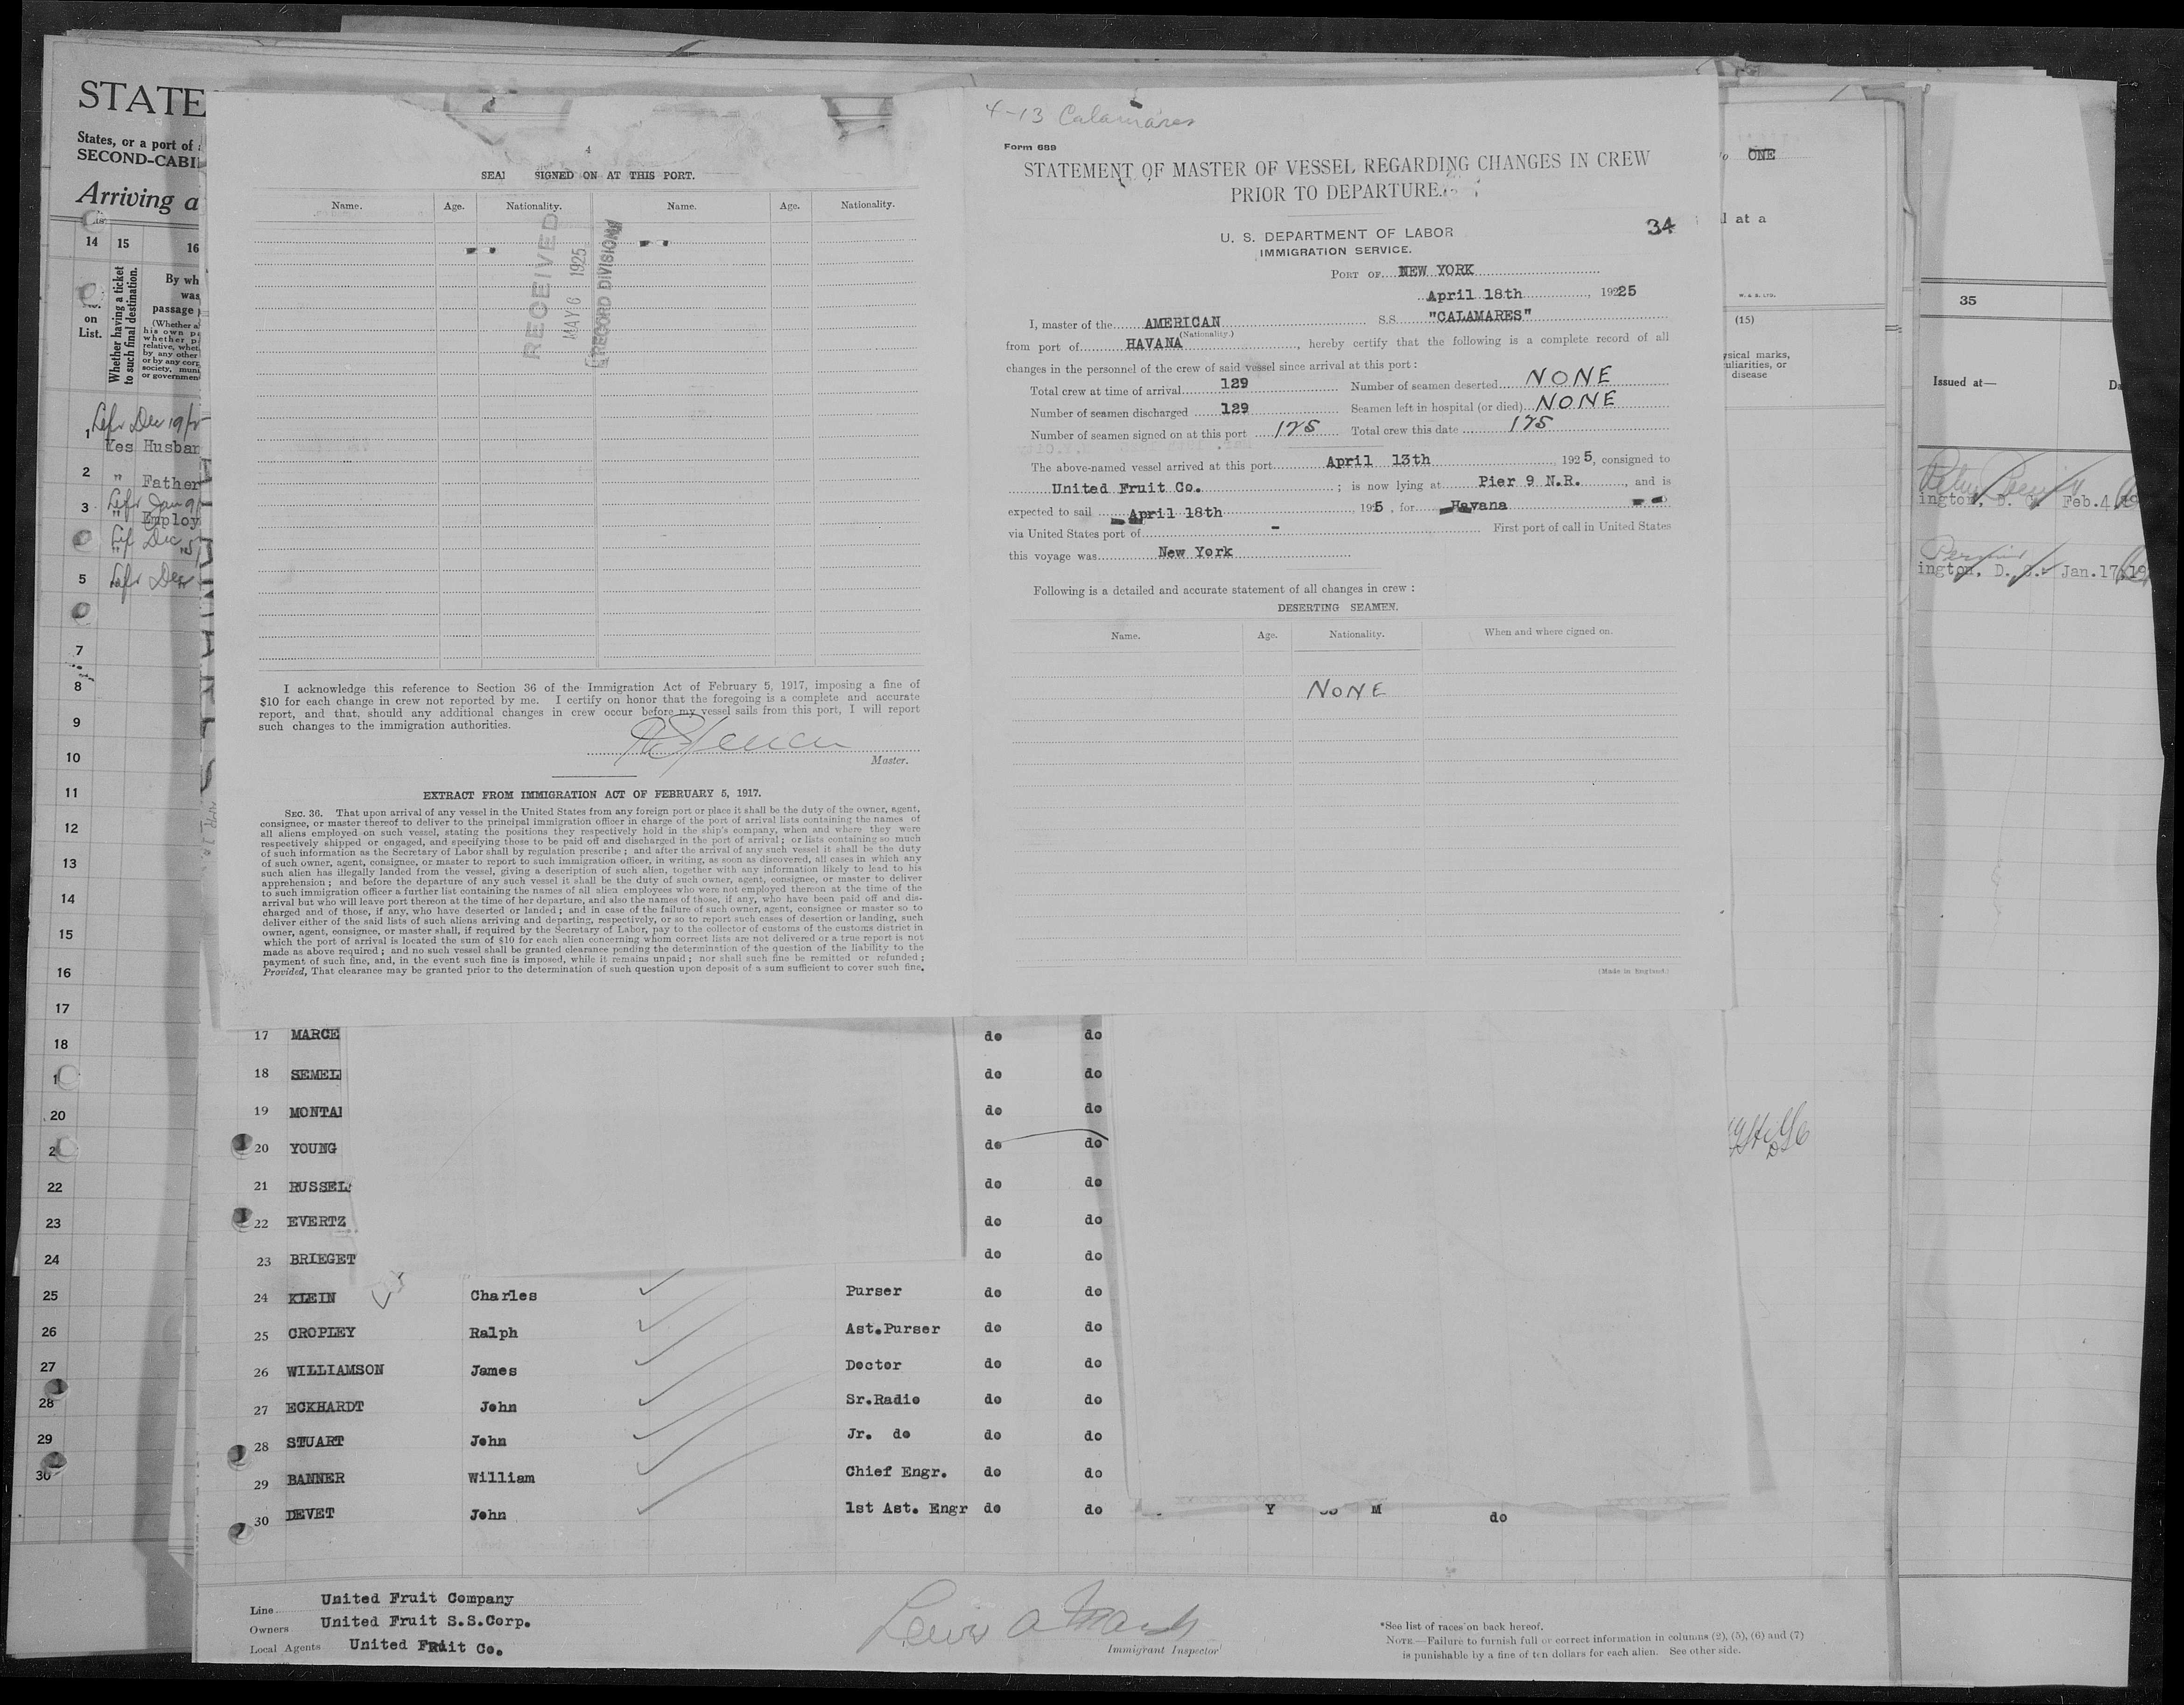 STATE
States, or a port of
SECOND-CABI
Arriving a
14 15 16
on
List.
Whether having a ticket
to such final destination.
By wh
was
passage
(Whether a
his own p
whether p
relative, whet
by any other
or by any corp
society, muni
or governmen
1
Yes Husban
2 " Father
3 " Employ
5
7
8
9
10
11
12
13
14
15
16
17
18
20
22
23
24
25
26
27
28
29
30
4
SEA SIGNED ON AT THIS PORT.
Name. Age. Nationality. Name. Age. Nationality.
RECEIVED
MAY 6 1925
RECORD DIVISION
I acknowledge this reference to Section 36 of the Immigration Act of February 5, 1917, imposing a fine of
$10 for each change in crew not reported by me. I certify on honor that the foregoing is a complete and accurate
report, and that, should any additional changes in crew occur before my vessel sails from this port, I will report
such changes to the immigration authorities.
Master.
EXTRACT FROM IMMIGRATION ACT OF FEBRUARY 5, 1917.
SEC. 36. That upon arrival of any vessel in the United States from any foreign port or place it shall be the duty of the owner, agent,
consignee, or master thereof to deliver to the principal immigration officer in charge of the port of arrival lists containing the names of
all aliens employed on such vessel, stating the positions they respectively hold in the ship's company, when and where they were
respectively shipped or engaged, and specifying those to be paid off and discharged in the port of arrival; or lists containing so much
of such information as the Secretary of Labor shall by regulation prescribe; and after the arrival of any such vessel it shall be the duty
of such owner, agent, consignee, or master to report to such immigration officer, in writing, as soon as discovered, all cases in which any
such alien has illegally landed from the vessel, giving a description of such alien, together with any information likely to lead to his
apprehension; and before the departure of any such vessel it shall be the duty of such owner, agent, consignee, or master to deliver
to such immigration officer a further list containing the names of all alien employees who were not employed thereon at the time of the
arrival but who will leave port thereon at the time of her departure, and also the names of those, if any, who have been paid off and dis-
charged and of those, if any, who have deserted or landed; and in case of the failure of such owner, agent, consignee or master so to
deliver either of the said lists of such aliens arriving and departing, respectively, or so to report such cases of desertion or landing, such
owner, agent, consignee, or master shall, if required by the Secretary of Labor, pay to the collector of customs of the customs district in
which the port of arrival is located the sum of $10 for each alien concerning whom correct lists are not delivered or a true report is not
made as above required; and no such vessel shall be granted clearance pending the determination of the question of the liability to the
payment of such fine, and, in the event such fine is imposed, while it remains unpaid; nor shall such fine be remitted or refunded;
Provided, That clearance may be granted prior to the determination of such question upon deposit of a sum sufficient to cover such fine.
4-13 Calamares
Form 689
STATEMENT OF MASTER OF VESSEL REGARDING CHANGES IN CREW
PRIOR TO DEPARTURE.
34
U. S. DEPARTMENT OF LABOR
IMMIGRATION SERVICE.
PORT OF NEW YORK
April 18th, 1925
I, master of the AMERICAN S.S. "CALAMARES"
(Nationality.)
from port of HAVANA, hereby certify that the following is a complete record of all
changes in the personnel of the crew of said vessel since arrival at this port:
Total crew at time of arrival 129 Number of seamen deserted NONE
Number of seamen discharged 129 Seamen left in hospital (or died) NONE
Number of seamen signed on at this port 125 Total crew this date 125
The above-named vessel arrived at this port April 13th 1925, consigned to
United Fruit Co. ; is now lying at Pier 9 N.R., and is
expected to sail April 18th 1925, for Havana
via United States port of - First port of call in United States
this voyage was New York
Following is a detailed and accurate statement of all changes in crew:
DESERTING SEAMEN.
Name. Age. Nationality. When and where signed on.
NONE
(Made in England.)
ONE
l at a
W. & S. LTD.
(15)
ysical marks,
uliarities, or
disease
35
Issued at— Da
ington, D. C. Feb.4
ington, D. C. Jan.17, 19
17 MARCE do do
18 SEMEL do do
19 MONTA do do
20 YOUNG do do
21 RUSSEL do do
22 EVERTZ do do
23 BRIEGET do do
24 KLEIN Charles Purser do do
25 CROPLEY Ralph Ast.Purser do do
26 WILLIAMSON James Doctor do do
27 ECKHARDT John Sr.Radio do do
28 STUART John Jr. do do do
29 BANNER William Chief Engr. do do
30 DEVET John 1st Ast. Engr do do Y M do
Line United Fruit Company
Owners United Fruit S.S.Corp.
Local Agents United Fruit Co.
Immigrant Inspector
*See list of races on back hereof.
NOTE.—Failure to furnish full or correct information in columns (2), (5), (6) and (7)
is punishable by a fine of ten dollars for each alien. See other side.